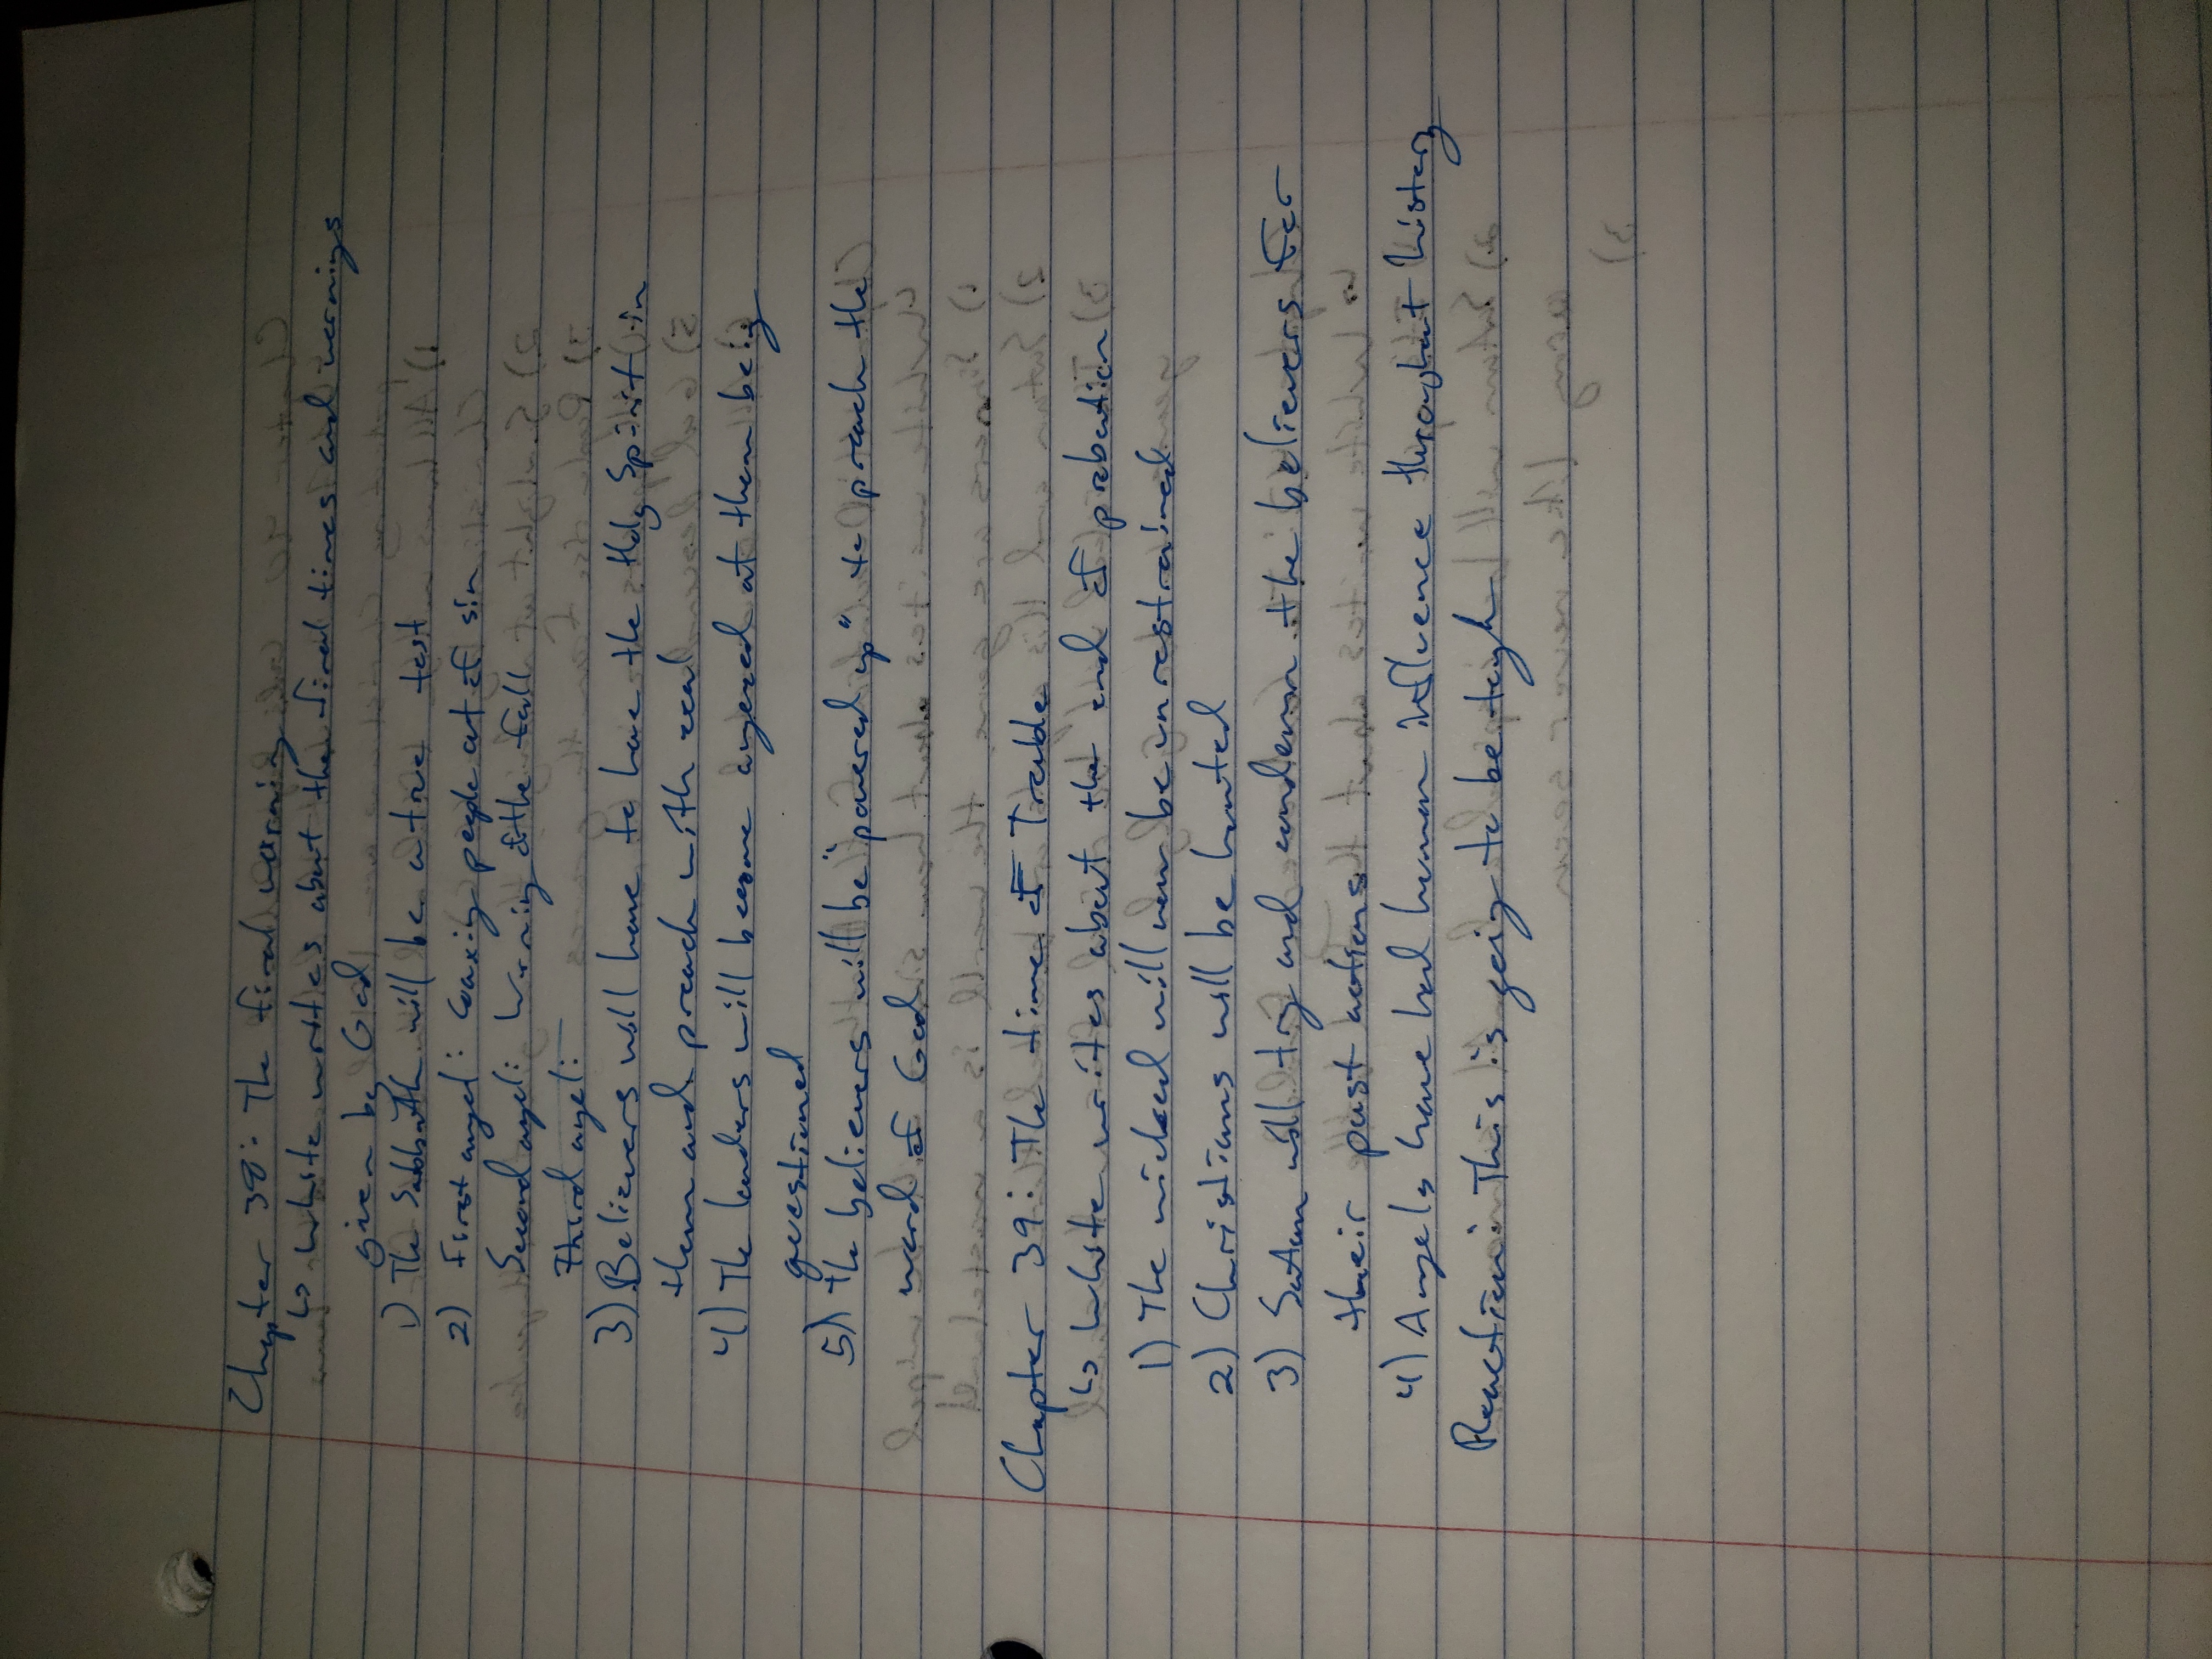 Chapter 38: The final warning
↳ White writes about the final times and warnings
given by God
1) The Sabbath will be a true test
2) First angel: Coaxing people out of sin
Second angel: Warning of the fall
Third angel:
3) Believers will have to have the Holy Spirit in
them and preach with zeal
4) The leaders will become angered at them being
questioned
5) The believers will be "powered up" to preach the
word of God
Chapter 39: The time of Trouble
↳ White writes about the end of probation
1) The wicked will now be unrestrained
2) Christians will be hunted
3) Satan will try and condemn the believers for
their past actions
4) Angels have had human influence throughout history
Reaction: This is going to be tough